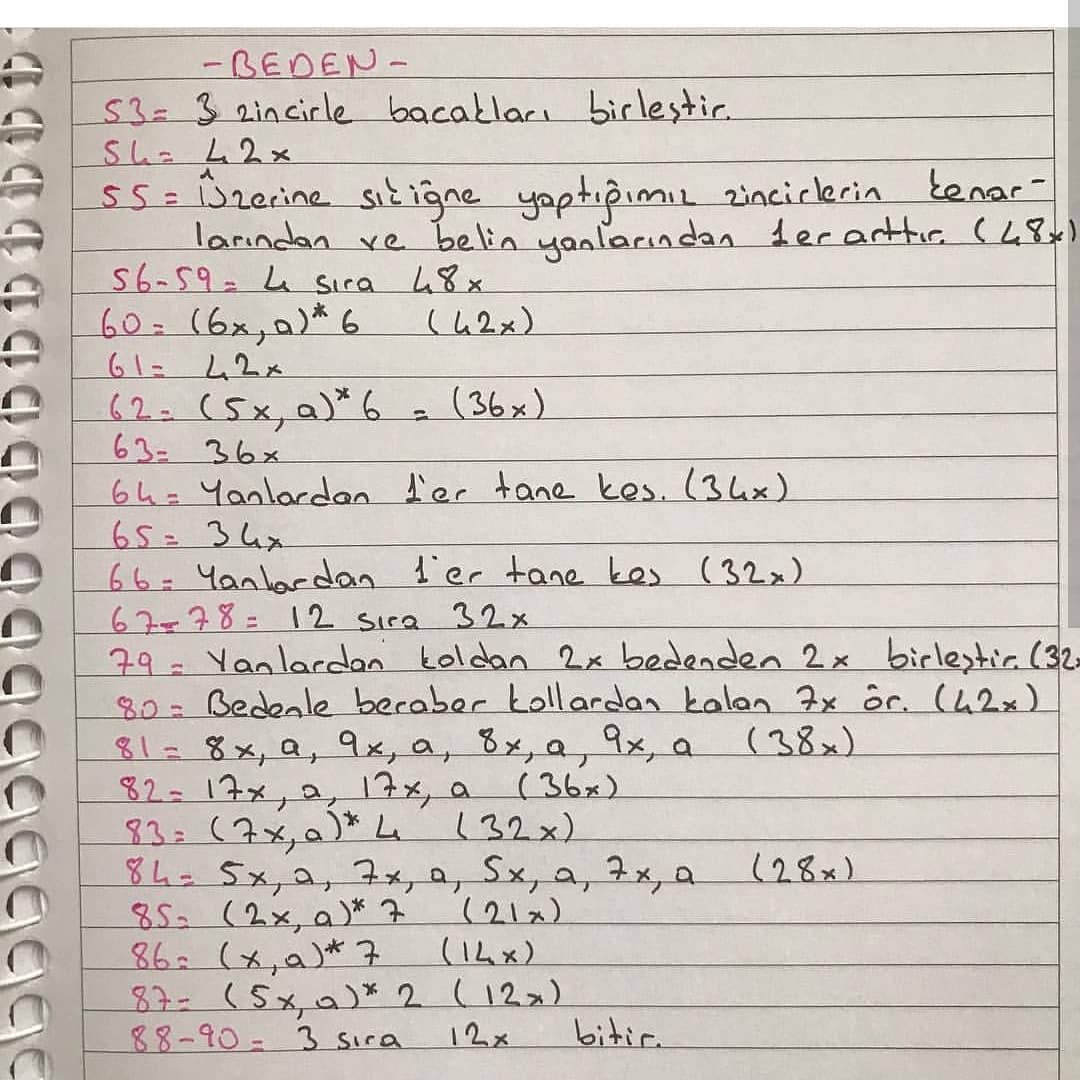 -BEDEN-
53= 3 zincirle bacakları birleştir.
54= 42x
55= Üzerine sık iğne yaptığımız zincirlerin kenar-
larından ve belin yanlarından 1er arttır. (48x)
56-59= 4 sıra 48x
60= (6x,a)*6 (42x)
61= 42x
62= (5x,a)*6 = (36x)
63= 36x
64= Yanlardan 1'er tane kes. (34x)
65= 34x
66= Yanlardan 1'er tane kes (32x)
67-78= 12 sıra 32x
79= Yanlardan koldan 2x bedenden 2x birleştir. (32
80= Bedenle beraber kollardan kalan 7x ör. (42x)
81= 8x, a, 9x, a, 8x, a, 9x, a (38x)
82= 17x, a, 17x, a (36x)
83= (7x,a)*4 (32x)
84= 5x, a, 7x, a, 5x, a, 7x, a (28x)
85= (2x,a)*7 (21x)
86= (x,a)*7 (14x)
87= (5x,a)*2 (12x)
88-90= 3 sıra 12x bitir.